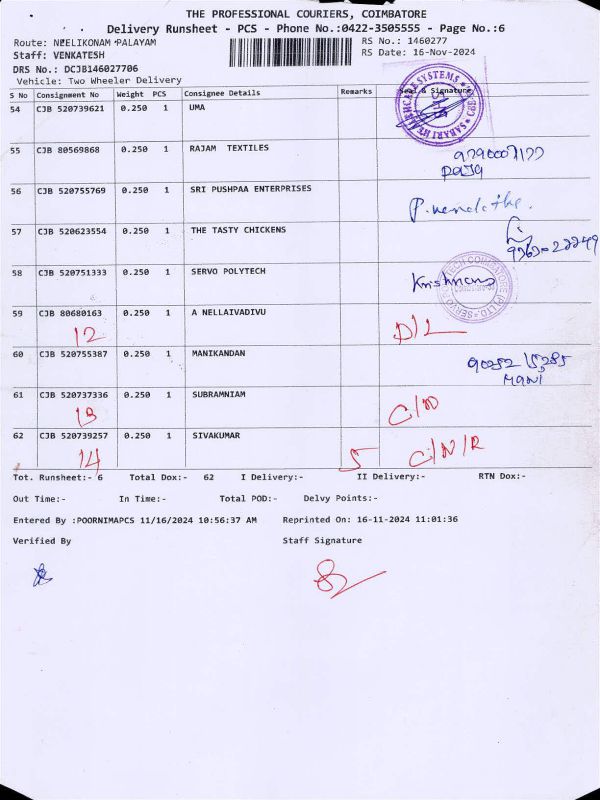 THE PROFESSIONAL COURIERS, COIMBATORE
Delivery Runsheet - PCS - Phone No.:0422-3505555 - Page No.:6
Route: NEELIKONAM PALAYAM RS No.: 1460277
Staff: VENKATESH RS Date: 16-Nov-2024
DRS No.: DCJB146027706
Vehicle: Two Wheeler Delivery
S No Consignment No Weight PCS Consignee Details Remarks Seal & Signature
54 CJB 520739621 0.250 1 UMA
55 CJB 80569868 0.250 1 RAJAM TEXTILES
56 CJB 520755769 0.250 1 SRI PUSHPAA ENTERPRISES
57 CJB 520623554 0.250 1 THE TASTY CHICKENS
58 CJB 520751333 0.250 1 SERVO POLYTECH
59 CJB 80680163 0.250 1 A NELLAIVADIVU
12 D/L
60 CJB 520755387 0.250 1 MANIKANDAN
MANI
61 CJB 520737336 0.250 1 SUBRAMNIAM
13 C/N
62 CJB 520739257 0.250 1 SIVAKUMAR
14 5 C/N/R
Tot. Runsheet:- 6 Total Dox:- 62 I Delivery:- II Delivery:- RTN Dox:-
Out Time:- In Time:- Total POD:- Delvy Points:-
Entered By :POORNIMAPCS 11/16/2024 10:56:37 AM Reprinted On: 16-11-2024 11:01:36
Verified By Staff Signature